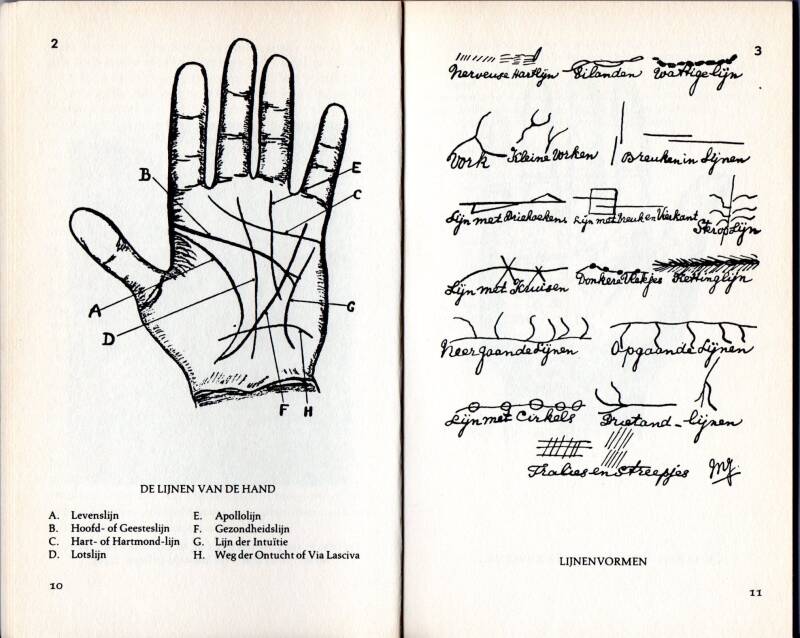 2
B
E
C
A
D
G
F
H
DE LIJNEN VAN DE HAND
A. Levenslijn
B. Hoofd- of Geesteslijn
C. Hart- of Hartmond-lijn
D. Lotslijn
E. Apollolijn
F. Gezondheidslijn
G. Lijn der Intuïtie
H. Weg der Ontucht of Via Lasciva
10
3
Nerveuse Hartlijn Eilanden Wattige lijn
Vork Kleine Vorken Breuken in Lijnen
Lijn met Driehoekens Lijn met Breuk en Vierkant Ster op Lijn
Lijn met Kruisen Donkere Vlekjes Kettinglijn
Neergaande Lijnen Opgaande Lijnen
Lijn met Cirkels Drietand-lijnen
Tralies en Streepjes
LIJNENVORMEN
11